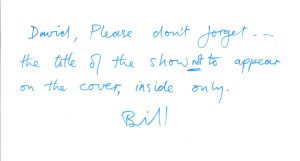 David, Please don't forget --
the title of the show not to appear
on the cover, inside only.
Bill